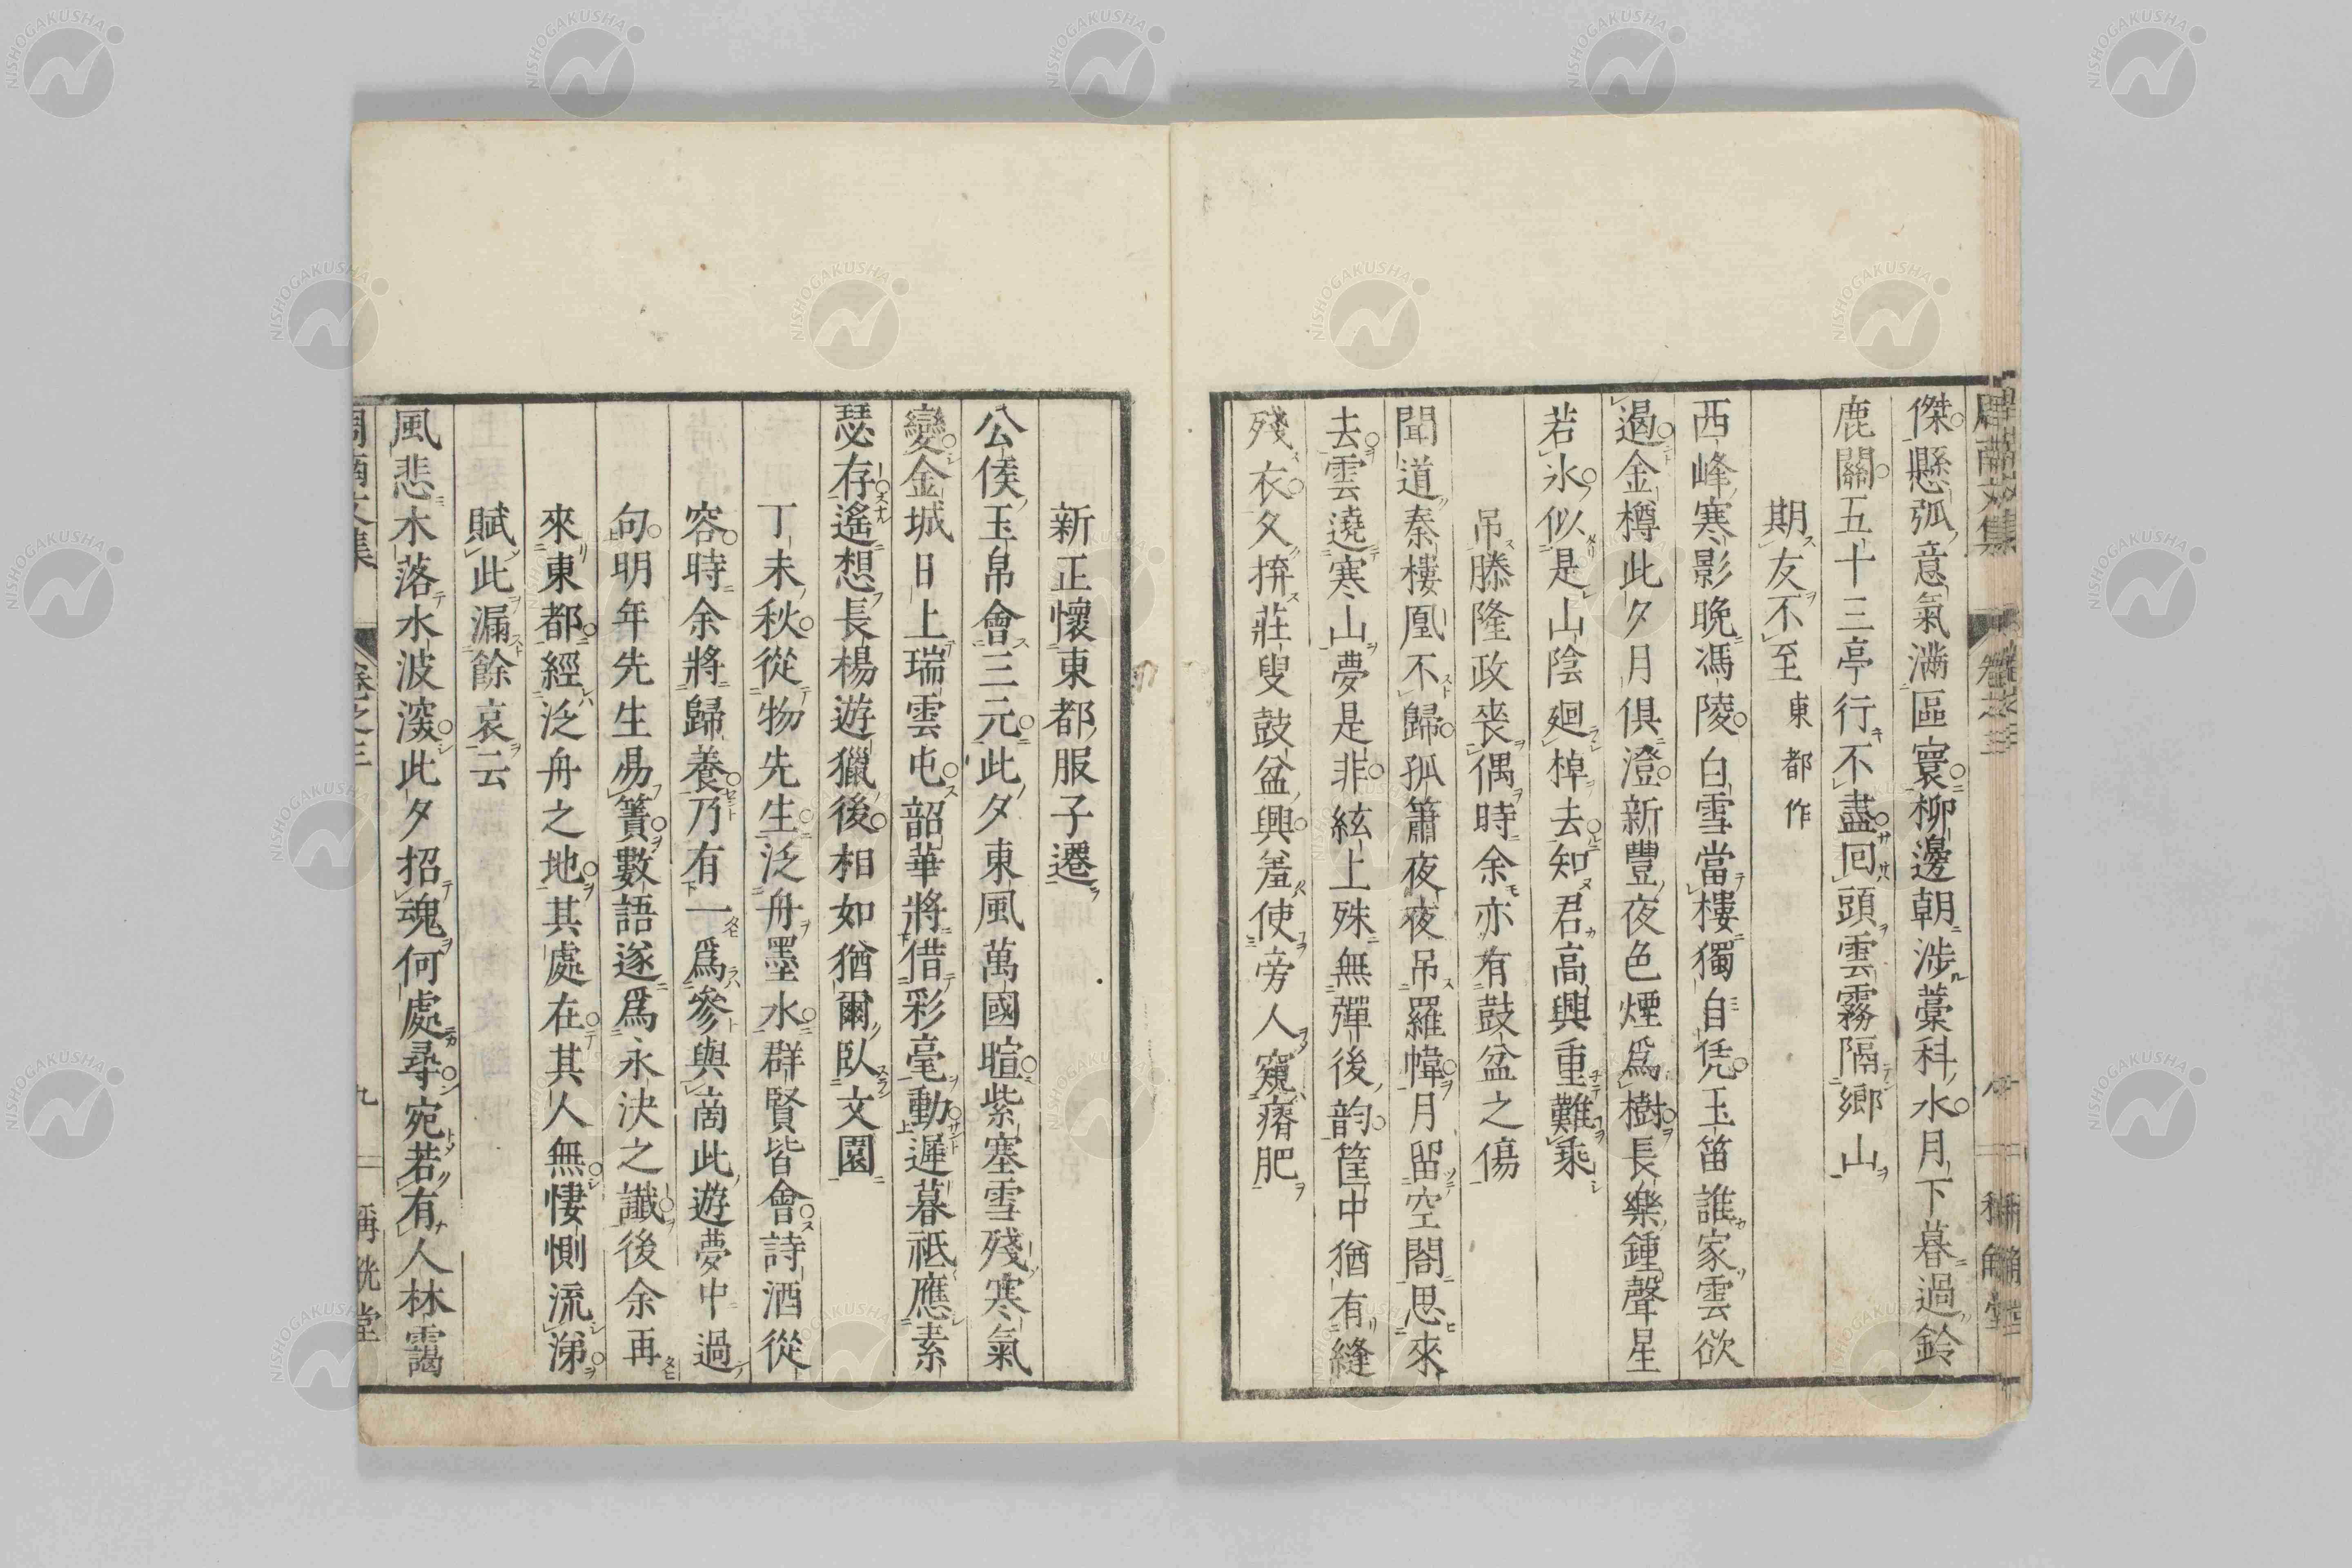 傑懸弧意氣滿區寰柳邊朝涉藁科水月下暮過鈴
鹿關五十三亭行不盡回頭雲霧隔鄉山
期友不至 東都作
西峰寒影晚馮陵白雪當樓獨自凭玉笛誰家雲欲
遏金樽此夕月俱澄新豐夜色煙爲樹長樂鍾聲星
若氷似是山陰廻棹去知君高興重難乘
吊滕隆政喪偶時余亦有鼓盆之傷
聞道秦樓凰不歸孤簫夜夜吊羅幃月留空閤思來
去雲遶寒山夢是非絃上殊無彈後韵筐中猶有縫
殘衣久拚莊叟鼓盆興羞使旁人窺瘠肥
新正懷東都服子遷
公侯玉帛會三元此夕東風萬國暄紫塞雪殘寒氣
變金城日上瑞雲屯韶華將借彩毫動遲暮祗應素
瑟存遙想長楊遊獵後相如猶爾臥文園
丁未秋從物先生泛舟墨水群賢皆會詩酒從
容時余將歸養乃有一爲參與商此遊夢中過
句明年先生易簀數語遂爲永決之讖後余再
來東都經泛舟之地其處在其人無悽惻流涕
賦此漏餘哀云
風悲木落水波深此夕招魂何處尋宛若有人林靄
卷之三
九
稱觥堂